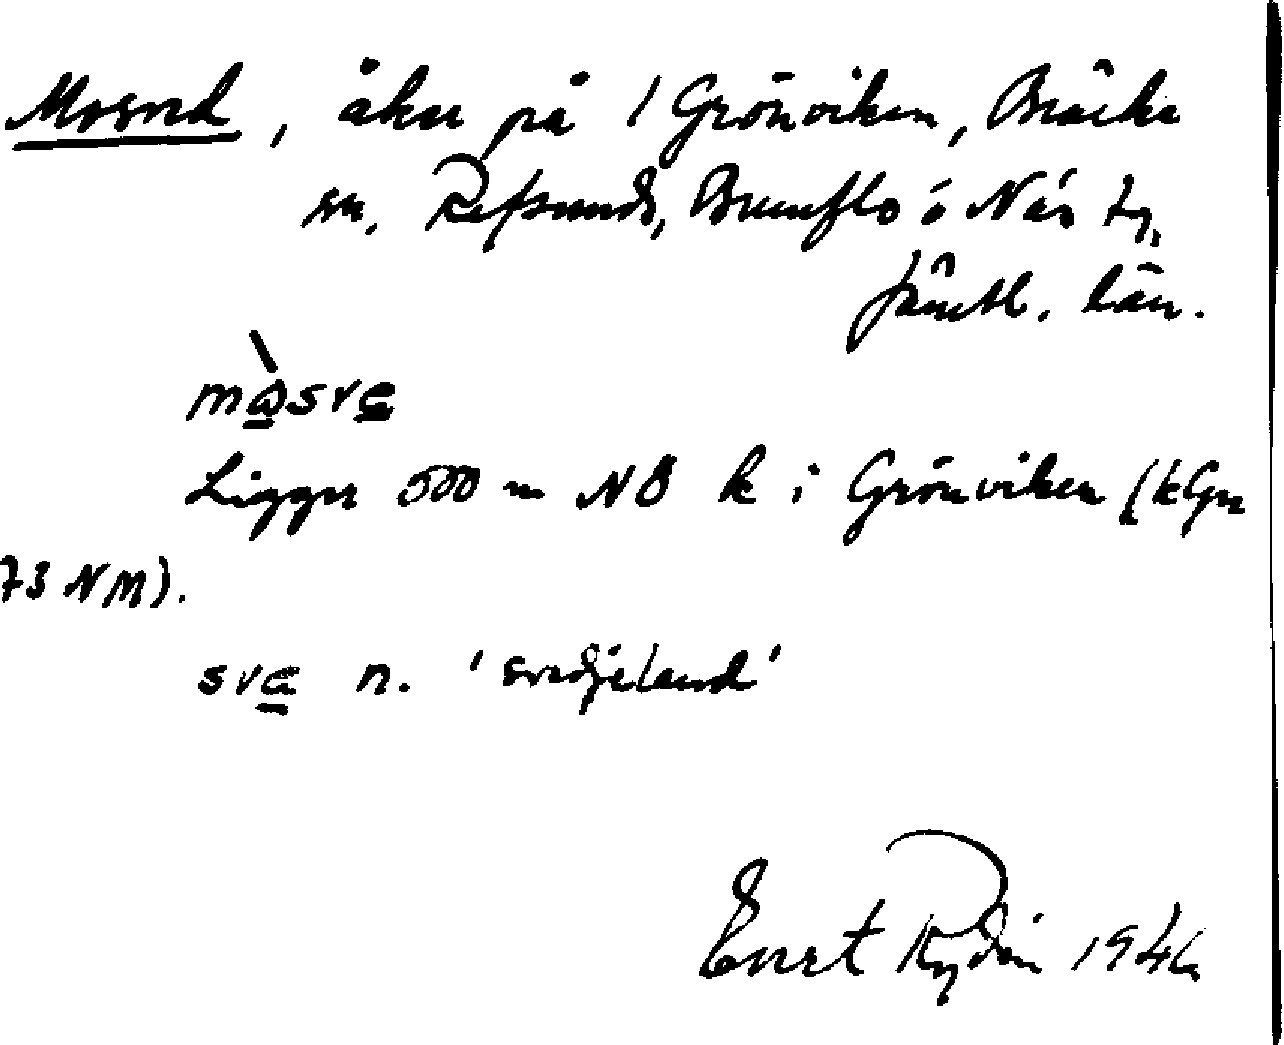 Mosved, åker på 1 Grönviken, Bräcke
sn. Refsunds, Brunflo o Näs tg.
Jämtl. län.
måsve
Ligger 500 m NÖ k i Grönviken (kGn
73 NM).
sve n. 'svedjeland'
Evert Rydén 1946